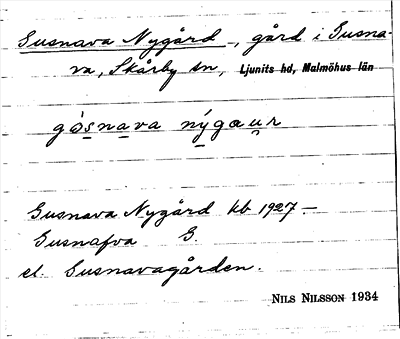 Gusnava Nygård, gård i Gusna-
va, Skårby sn, Ljunits hd, Malmöhus län
gósnava nýgœur
Gusnava Nygård kb 1927 –
Gusnafva G.
el. Gusnavagården.
NILS NILSSON 1934